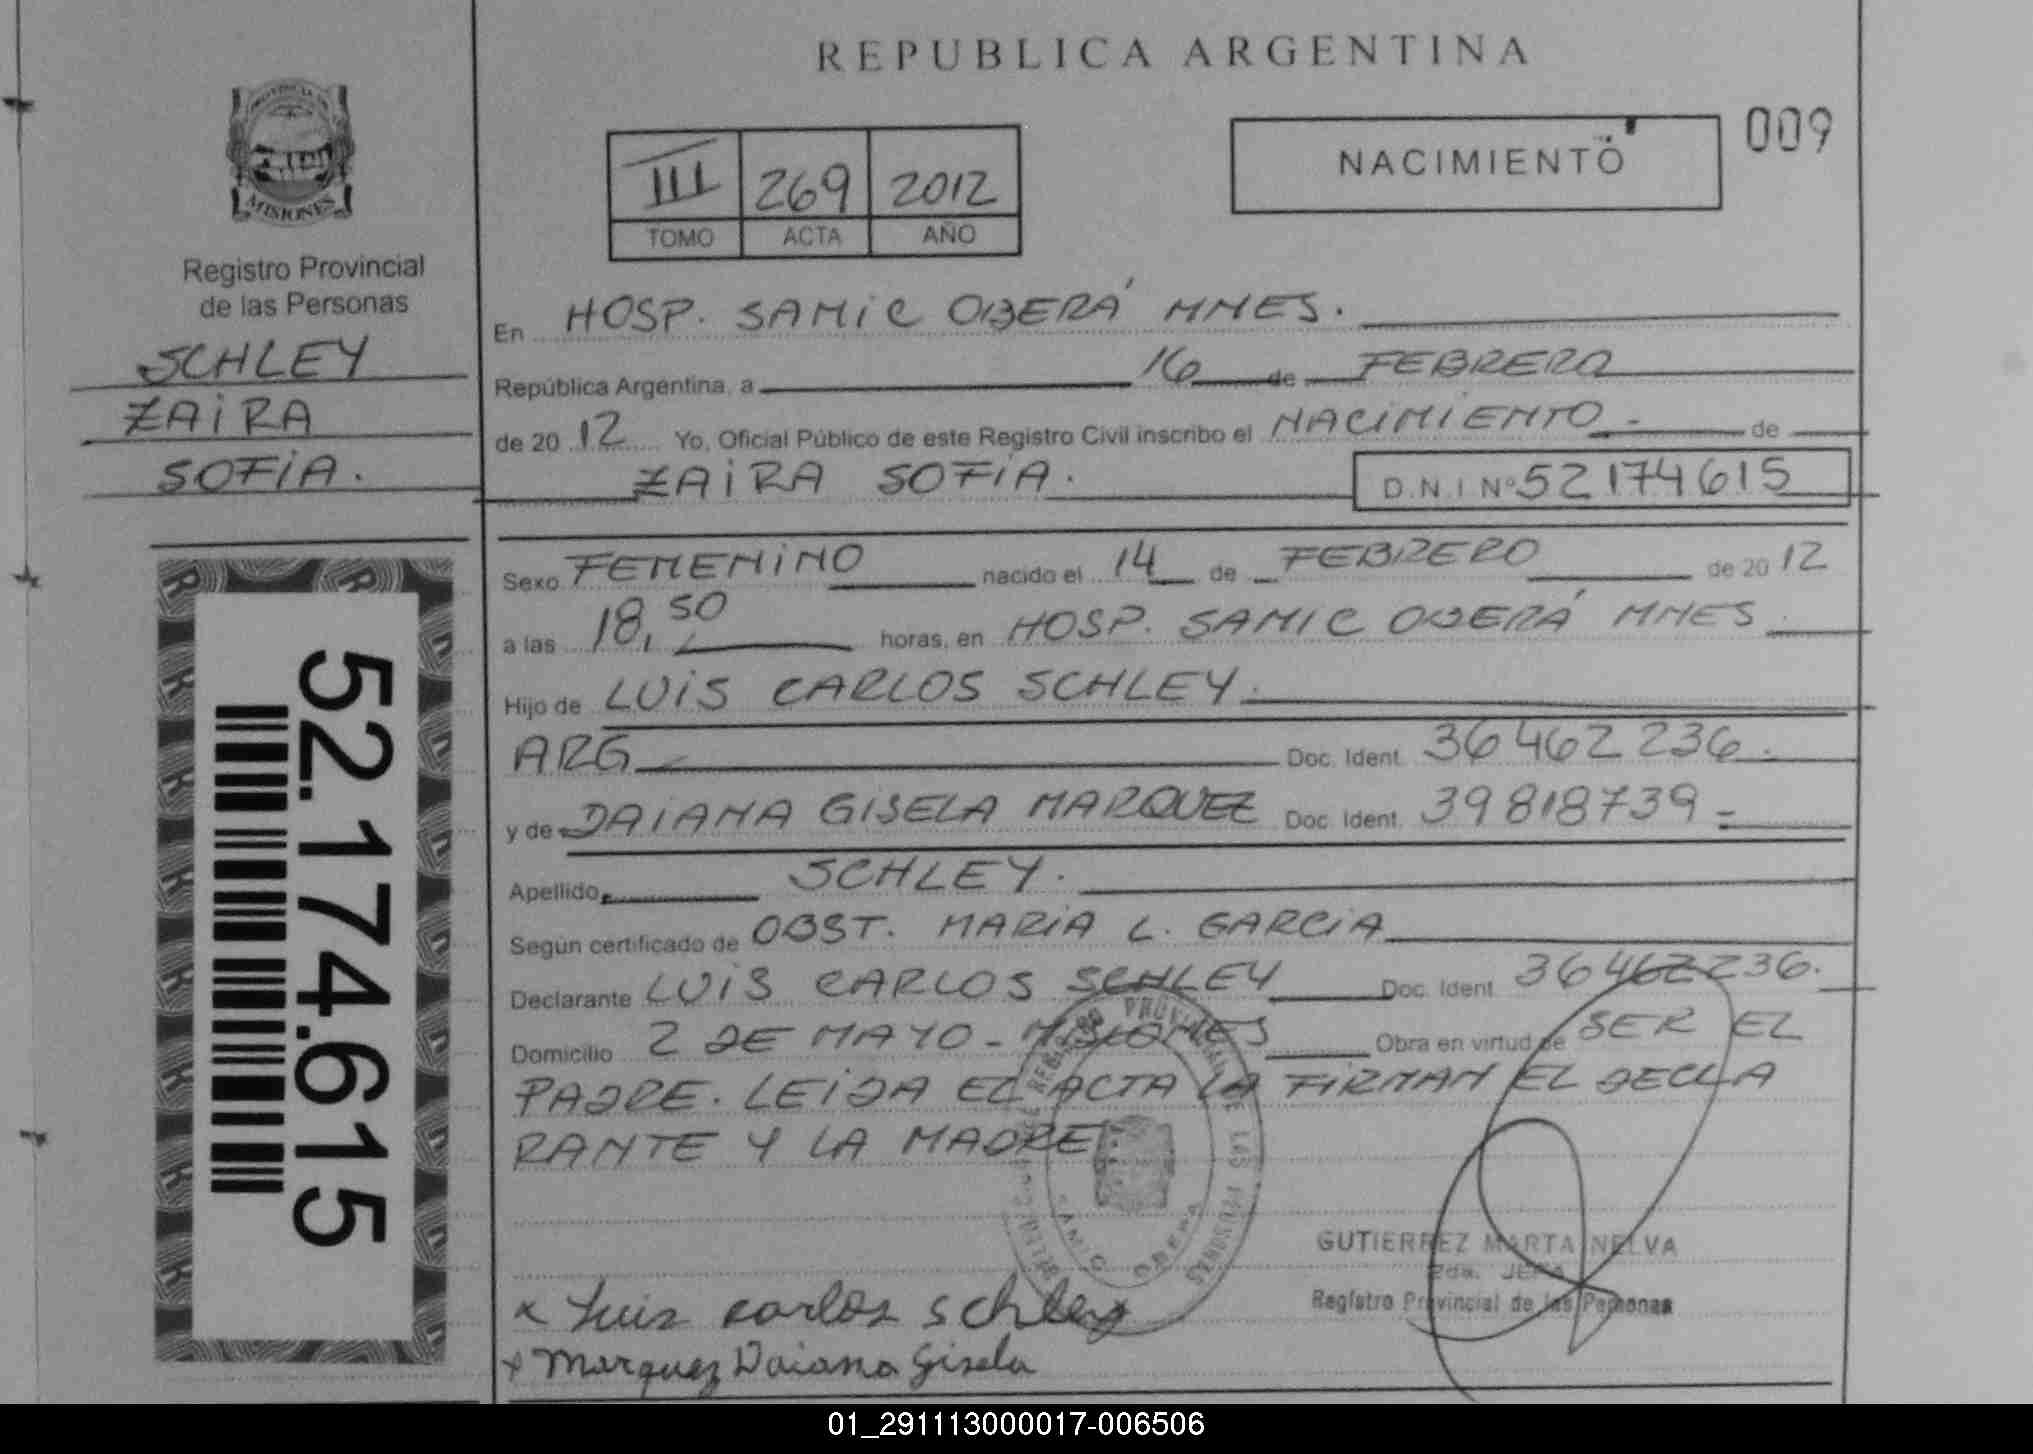 REPUBLICA ARGENTINA
PROVINCIA DE
MISIONES
Registro Provincial
de las Personas
SCHLEY
ZAIRA
SOFIA.
52.174.615
III 269 2012
TOMO ACTA AÑO
NACIMIENTO
009
En HOSP. SAMIC OBERÁ MNES.
República Argentina, a 16 de FEBRERO
de 2012 Yo, Oficial Público de este Registro Civil inscribo el NACIMIENTO - de
ZAIRA SOFIA. D.N.I Nº 52174615
Sexo FEMENINO nacido el 14 de FEBRERO de 2012
a las 18,50 horas, en HOSP. SAMIC OBERÁ MNES.
Hijo de LUIS CARLOS SCHLEY.
ARG Doc. Ident. 36462236.
y de DAIANA GISELA MARQUEZ Doc. Ident. 39818739-
Apellido SCHLEY.
Según certificado de OBST. MARIA L. GARCIA
Declarante LUIS CARLOS SCHLEY Doc. Ident 36462236.
Domicilio 2 DE MAYO - MISIONES Obra en virtud de SER EL
PADRE. LEIDA EL ACTA LA FIRMAN EL DECLA
RANTE Y LA MADRE
PROVINCIAL DE LAS PERSONAS
SAMIC OBERA
GUTIERREZ MARTA NELVA
2da. JEFA
Registro Provincial de las Personas
x Luis carlos schley
x Marquez Daiana Gisela
01_291113000017-006506